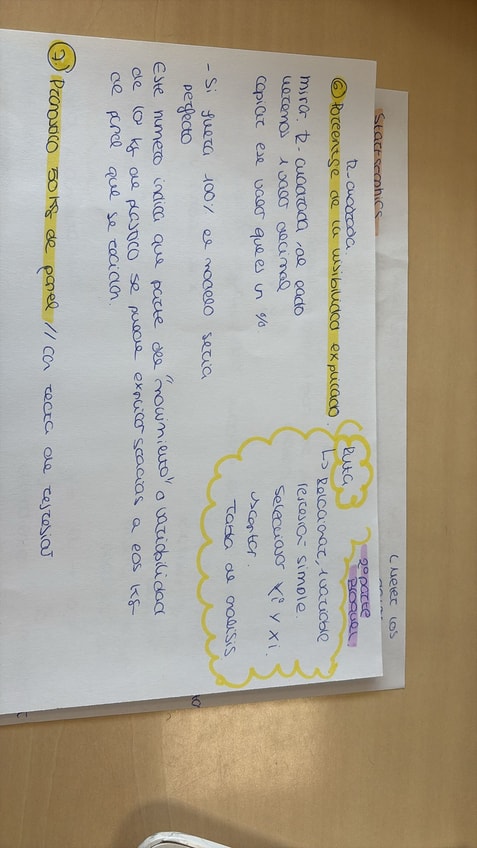 Statgraphics
R. cuadrada
⑥ Porcentage de la visibilidad explicado.
mirar R. cuadrada, de cado
valor decimal
copiar ese valor que es in %
- Si fuera 100% el modelo seria
perfecto
Este numero indica que parte del "movimiento" o variabilidad
de los kg de plastico se puede explicar gracias a los kg
de papel que se reciclan.
⑦ Pronostico 30 kg de papel // con recta de regresion
Ruta
↳ Relacionar, 1 variable
regresion simple.
Seleccionar Yi y Xi.
Tabla de analisis
2ª parte
bloque 1
( Meter los